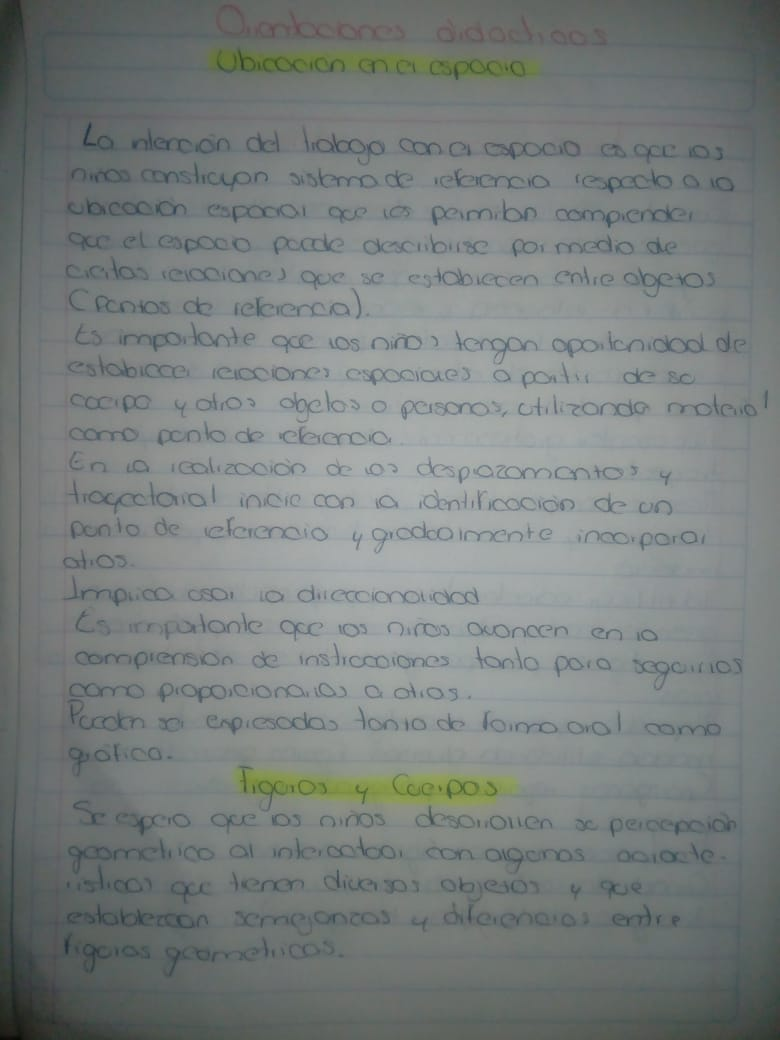 Orientaciones didacticas
Ubicación en el espacio
La intención del trabajo con el espacio es que los
niños construyan sistema de referencia respecto a la
ubicación espacial que les permitan comprender
que el espacio puede describirse por medio de
ciertas relaciones que se establecen entre objetos
(Puntos de referencia).
Es importante que los niños tengan oportunidad de
establecer relaciones espaciales a partir de su
cuerpo y otros objetos o personas, utilizando material
como punto de referencia.
En la realización de los despazamentos y
trayectorial inicie con la identificación de un
punto de referencia y gradualmente incorporar
otros.
Implica usar la direccionalidad
Es importante que los niños avancen en la
comprensión de instrucciones tanto para seguirlas
como proporcionarlas a otros.
Pueden ser expresadas tanto de forma oral como
gráfica.
Figuras y Cuerpos
Se espera que los niños desarrollen su percepción
geometrica al interactuar con algunas caracte-
risticas que tienen diversos objetos y que
establezcan semejanzas y diferencias entre
figuras geometricas.